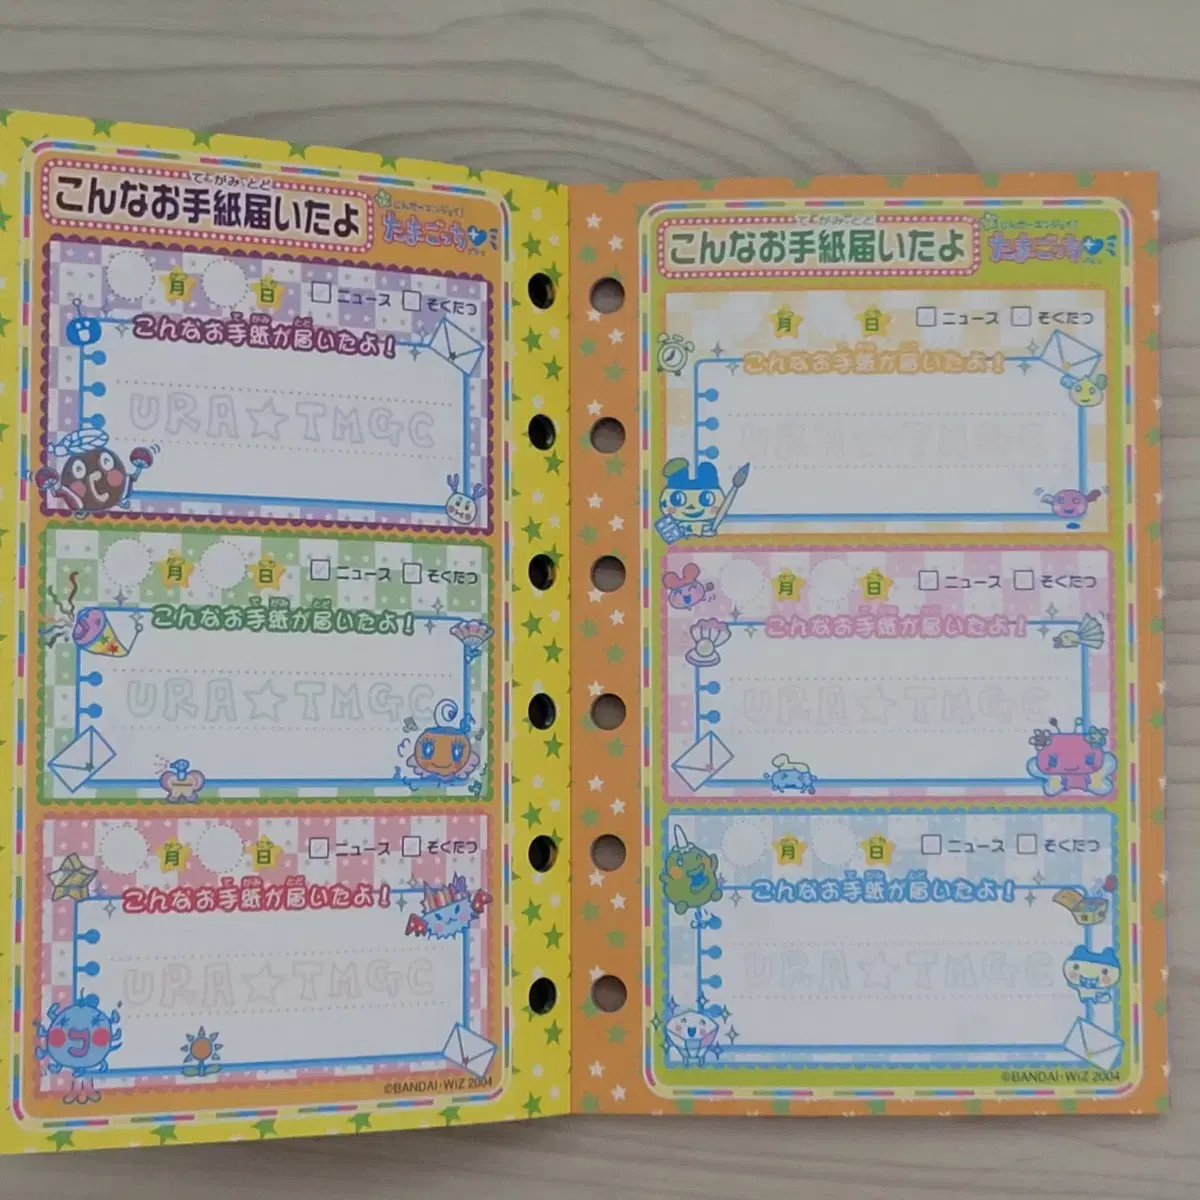 てがみ とど
こんなお手紙届いたよ
たまごっち
月 日 ニュース そくたつ
こんなお手紙が届いたよ!
URA☆TMGC
月 日 ニュース そくたつ
こんなお手紙が届いたよ!
URA☆TMGC
月 日 ニュース そくたつ
こんなお手紙が届いたよ!
URA☆TMGC
©BANDAI・WiZ 2004
てがみ とど
こんなお手紙届いたよ
たまごっち
月 日 ニュース そくたつ
こんなお手紙が届いたよ!
URA☆TMGC
月 日 ニュース そくたつ
こんなお手紙が届いたよ!
URA☆TMGC
月 日 ニュース そくたつ
こんなお手紙が届いたよ!
URA☆TMGC
©BANDAI・WiZ 2004